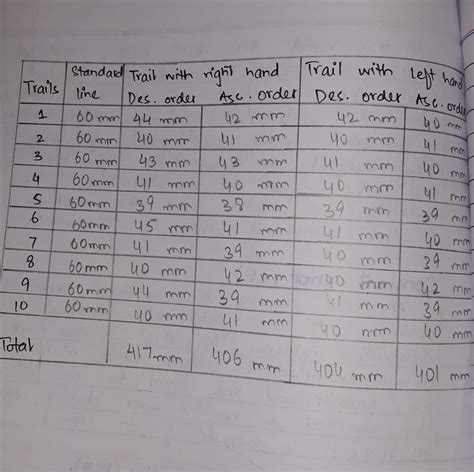 Trails Standard line Trail with right hand Trail with left hand
Des. order Asc. order Des. order Asc. order
1 60mm 44 mm 42 mm 42 mm 40 mm
2 60mm 40 mm 41 mm 40 mm 41 mm
3 60mm 43 mm 43 mm 41 mm 40 mm
4 60mm 41 mm 40 mm 40 mm 41 mm
5 60mm 39 mm 38 mm 39 mm 39 mm
6 60mm 45 mm 41 mm 41 mm 40 mm
7 60mm 41 mm 39 mm 40 mm 39 mm
8 60mm 40 mm 42 mm 40 mm 42 mm
9 60mm 44 mm 39 mm mm 39 mm
10 60mm 40 mm 41 mm 40 mm 40 mm
Total 417mm 406 mm 404 mm 401 mm